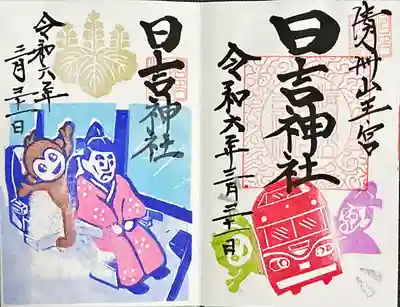 清洲山王宮
日吉神社
令和六年三月三十一日
日吉神社
令和六年
三月三十一日